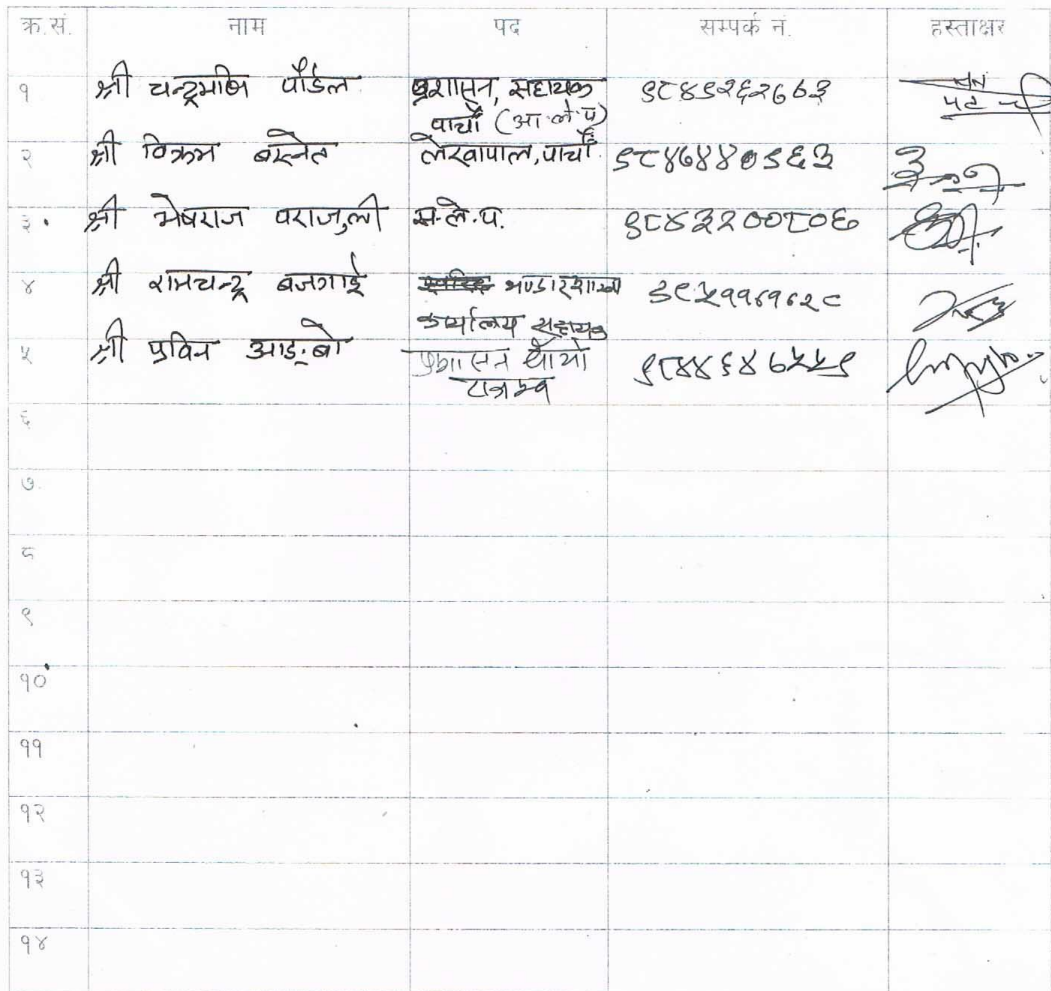 क्र.सं. नाम पद सम्पर्क नं. हस्ताक्षर
१ श्री चन्द्रमणि पौडेल प्रशासन, सहायक ९८४९२६२७७३
पाचौं (आ.ले.प)
२ श्री विक्रम बस्नेत लेखापाल, पाचौं ९८४७४४०९६३
३. श्री मेषराज पराजुली स.ले.प. ९८४३२००८०६
४ श्री रामचन्द्र बजगाई भण्डारशाखा
कार्यालय सहायक
५ श्री प्रविन आङ्बो प्रशासन ९८४४६४७५५९
६
७.
८
९
१०
११
१२
१३
१४